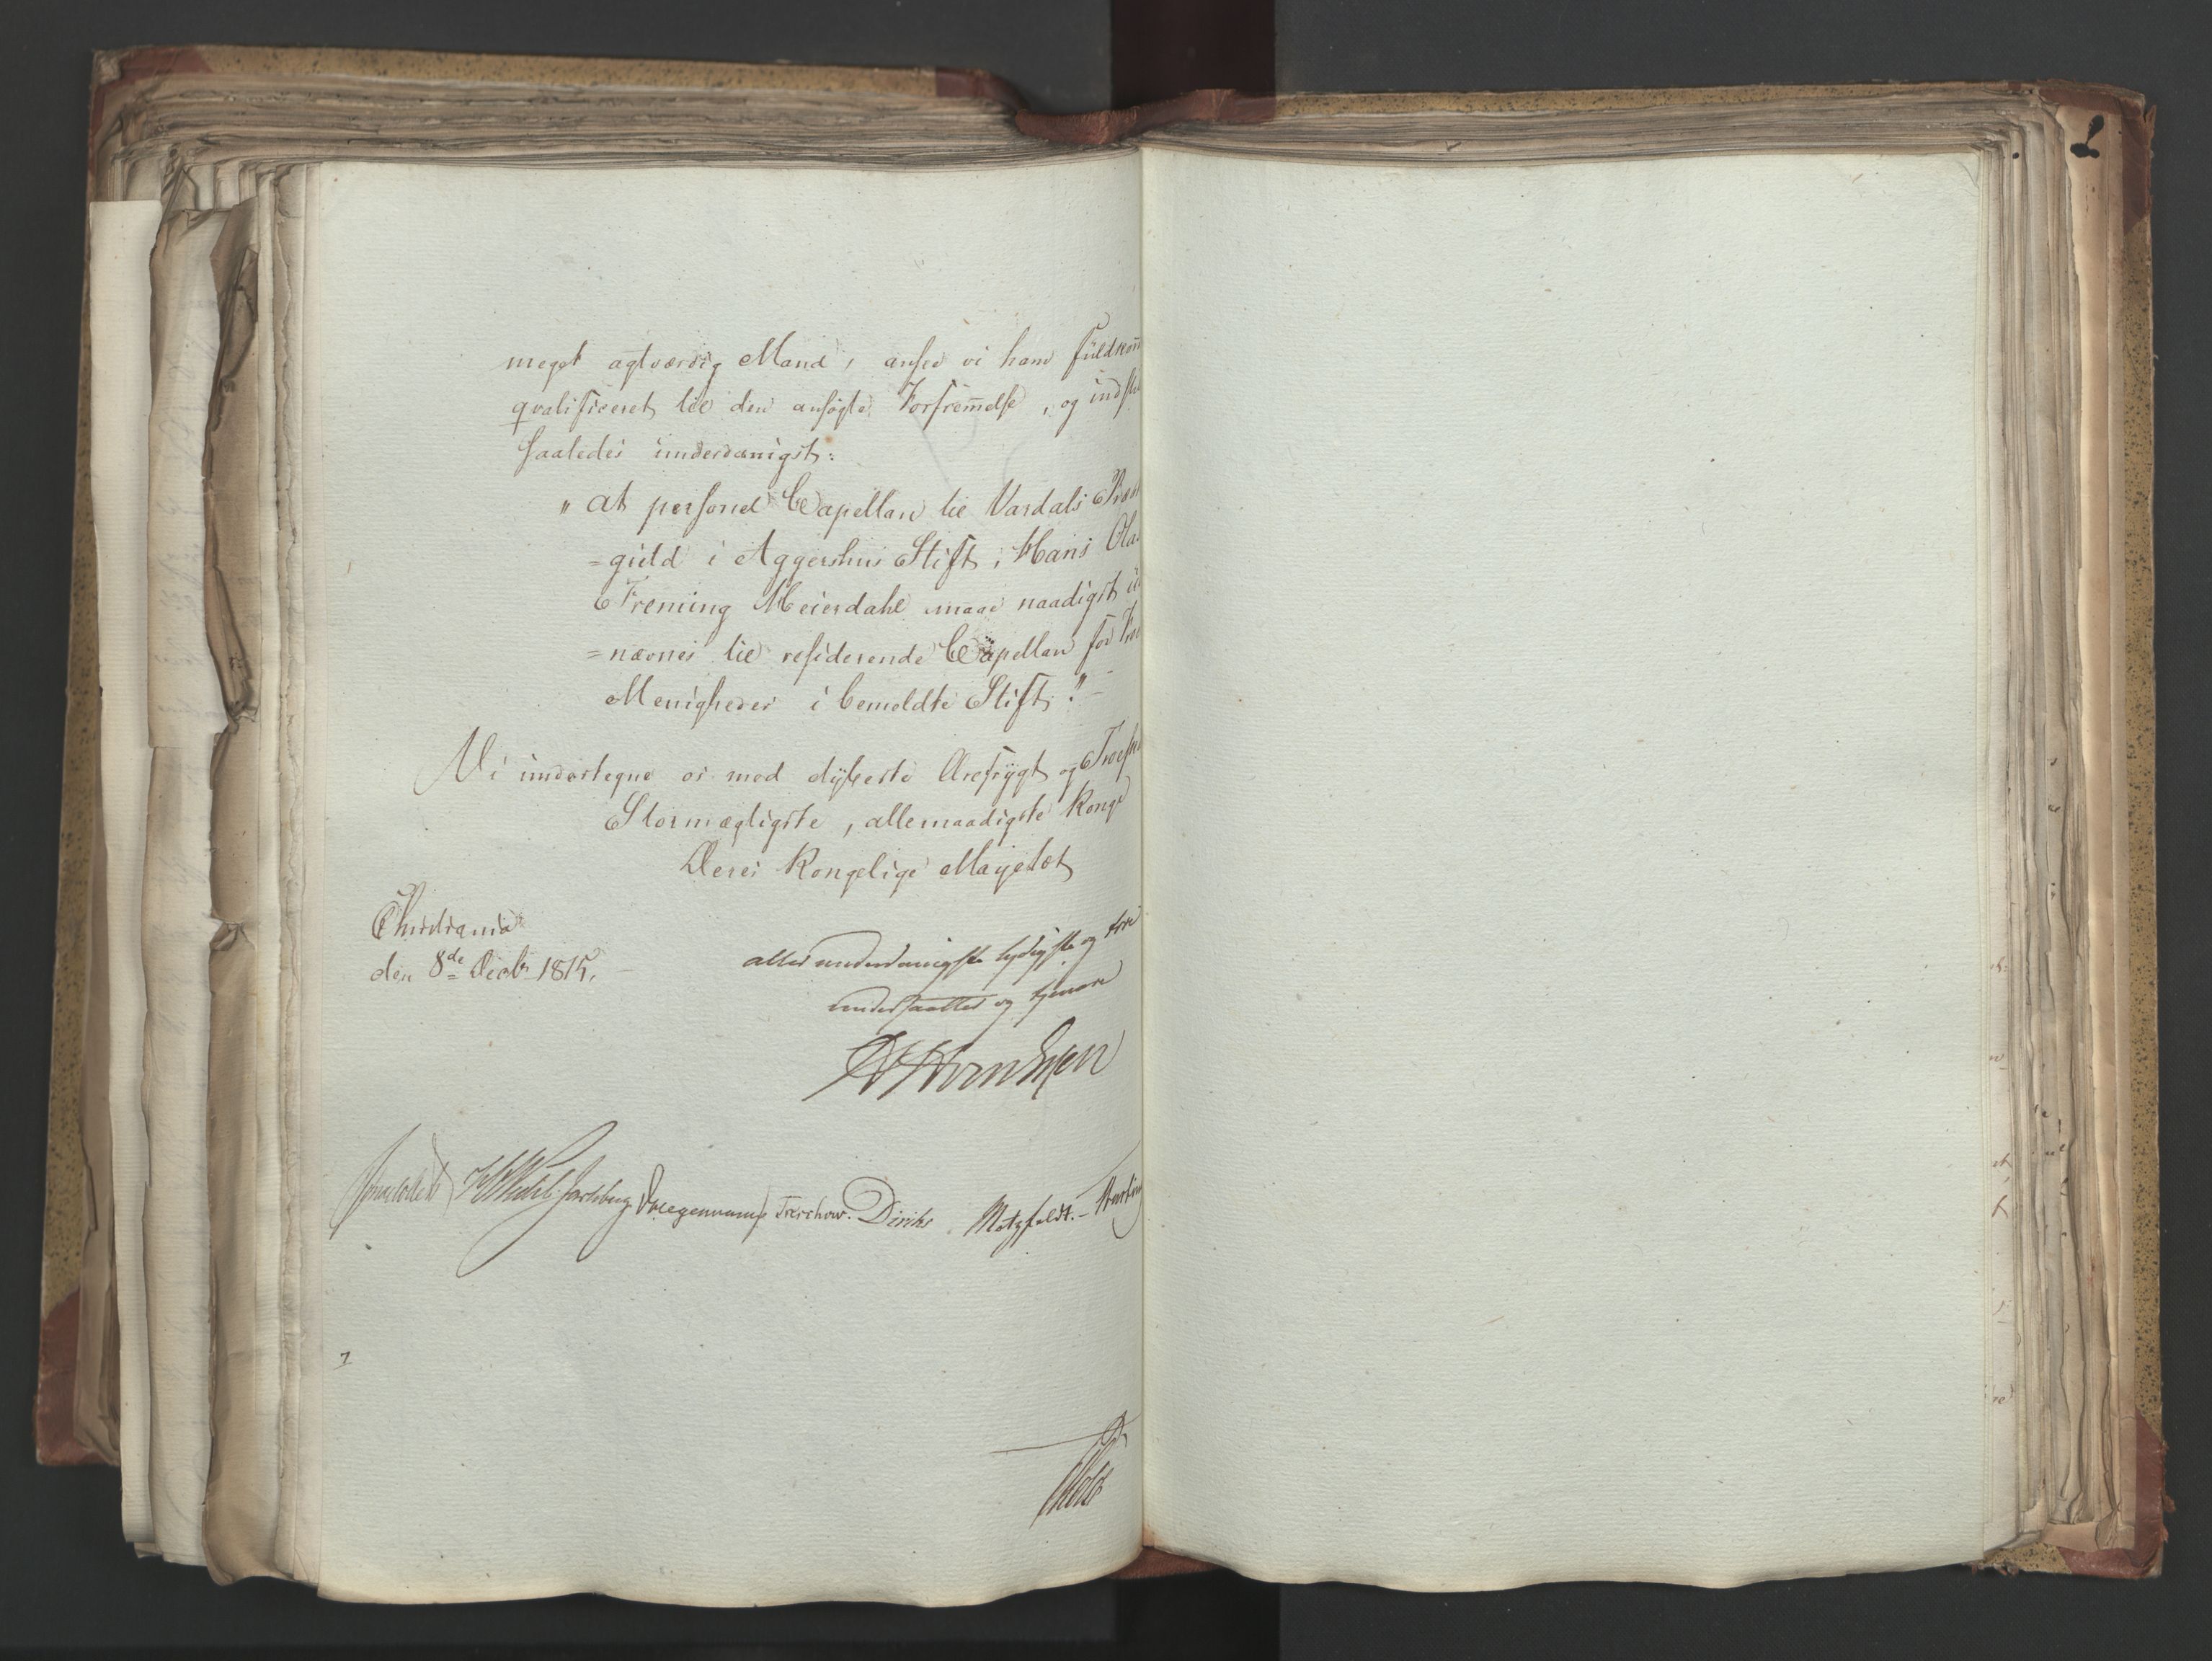 meget agtværdig Mand, ansee vi ham fuldkom̄
qvalificeret til den ansøgte Forfrem̄else, og indst
saaledes underdanigst:
" at personel Capellan til Vardals Præst
=giæld i Aggershus Stift, Hans Ola
Froming Meierdahl maae naadigst ud
=nævnes til residerende Capellan for
Menigheder i bemeldte Stift." –
Vi undertegne os med dybeste Ærefrygt og Troesk
Stormægtigste, allernaadigste Konge
Deres Kongelige Majestæt
Christiania
den 8de Decbr 1815.
allerunderdanigste lydigste og troe
undersaatter og tjenere
Sommerhielm HWedel Jarlsberg Krieger Treschow. Diriks Motzfeldt.
Holst